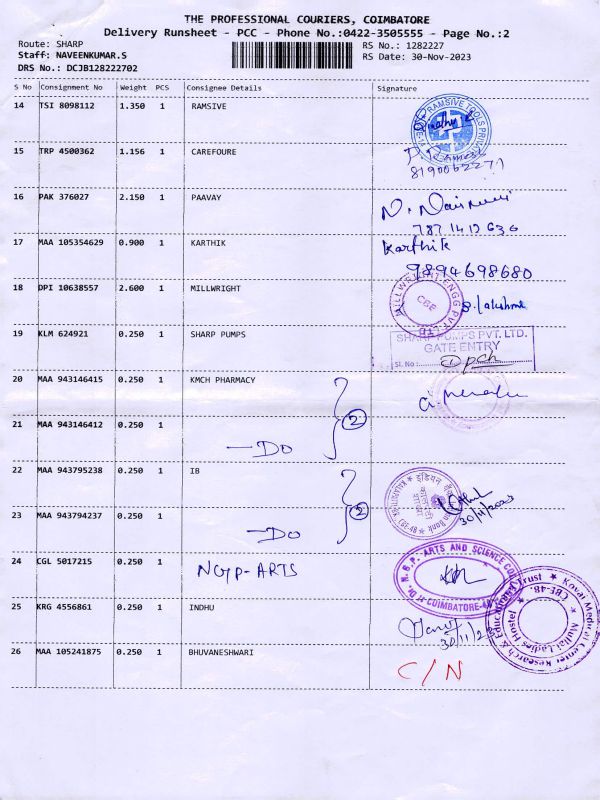 THE PROFESSIONAL COURIERS, COIMBATORE
Delivery Runsheet - PCC - Phone No.:0422-3505555 - Page No.:2
Route: SHARP
RS No.: 1282227
Staff: NAVEENKUMAR.S
RS Date: 30-Nov-2023
DRS No.: DCJB128222702
S No Consignment No Weight PCS Consignee Details Signature
14 TSI 8098112 1.350 1 RAMSIVE
RAMSIVE TOOLS
15 TRP 4500362 1.156 1 CAREFOURE
8190062271
16 PAK 376027 2.150 1 PAAVAY
17 MAA 105354629 0.900 1 KARTHIK Karthik
9894698680
18 DPI 10638557 2.600 1 MILLWRIGHT
MILLWRIGHT ENGG PVT LTD
CBE
S. Lakshme
19 KLM 624921 0.250 1 SHARP PUMPS
SHARP PUMPS PVT. LTD.
GATE ENTRY
SL No.:
20 MAA 943146415 0.250 1 KMCH PHARMACY
2
21 MAA 943146412 0.250 1 — DO
22 MAA 943795238 0.250 1 IB
2
इंडियन बैंक
30/11/2023
23 MAA 943794237 0.250 1 — DO
24 CGL 5017215 0.250 1 NGP-ARTS
Dr. N.G.P. ARTS AND SCIENCE
COIMBATORE
25 KRG 4556861 0.250 1 INDHU
30/11/23
Kovai Medical Center Research & Educational Trust
Mullai Ladies Hostel
CBE-48.
26 MAA 105241875 0.250 1 BHUVANESHWARI C/N